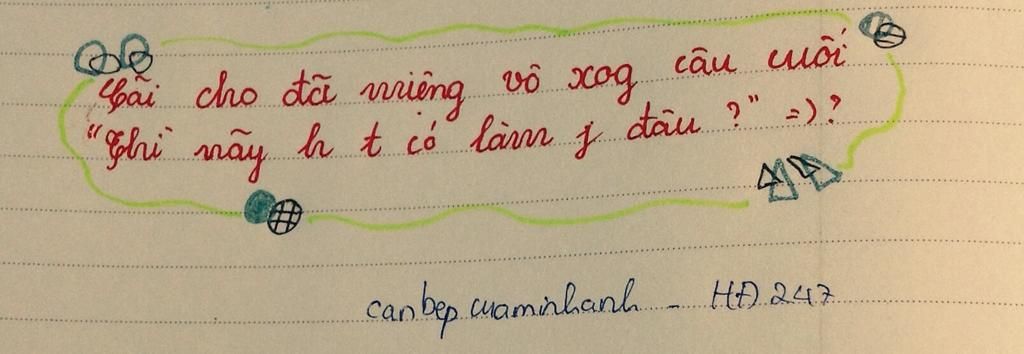 "Cãi cho đã miệng vô xog câu cuối
"Thì nãy h t có làm j đâu ?" =)?
canbepcuaminhanh - HĐ 247